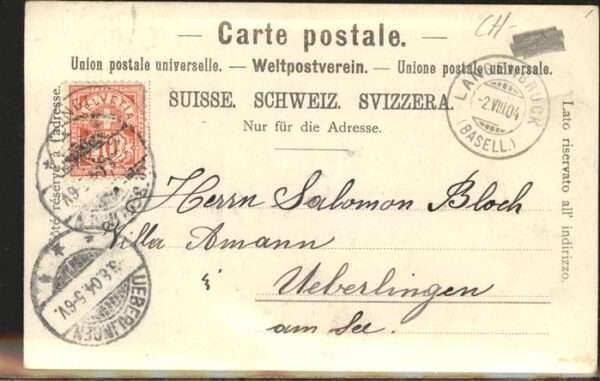 CH-
Carte postale.
Union postale universelle. — Weltpostverein. — Unione postale universale.
SUISSE. SCHWEIZ. SVIZZERA.
Nur für die Adresse.
Côté réservé à l'adresse.
Lato riservato all' indirizzo.
HELVETIA
10
LANGENBRUCK
-2.VIII.04
(BASELL.)
Herrn Salomon Bloch
Villa Amann
Ueberlingen
am See.
UEBERLINGEN
3.8.04.5-6V.